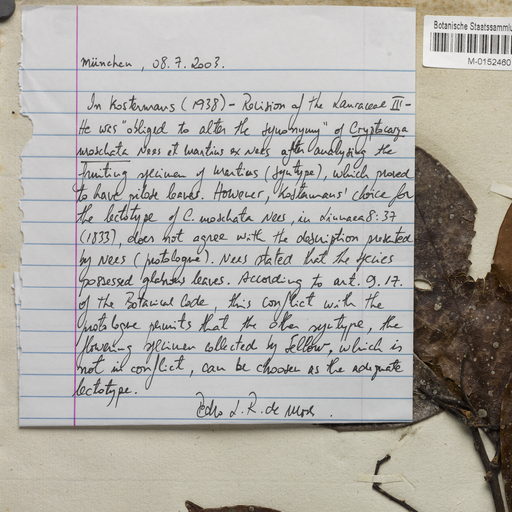 München, 08.7.2003.
In Kostermans (1938) - Revision of the Lauraceae III -
He was "obliged to alter the synonymy" of Cryptocarya
moschata Nees et Martius ex Nees after analysing the
fruiting specimen of Martius (syntype), which proved
to have pilose leaves. However, Kostermans' choice for
the lectotype of C. moschata Nees, in Linnaea 8:37
(1833), does not agree with the description presented
by Nees (protologue). Nees stated that the species
possessed glabrous leaves. According to art. 9.17.
of the Botanical Code, this conflict with the
protologue permits that the other syntype, the
flowering specimen collected by Sellow, which is
not in conflict, can be choosen as the adequate
lectotype.
Pedro L. R. de Moraes.
Botanische Staatssammlu
M-0152460